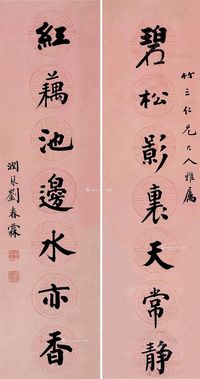 竹三仁兄大人雅属
碧松影裏天常静
紅藕池邊水亦香
潤琴劉春霖